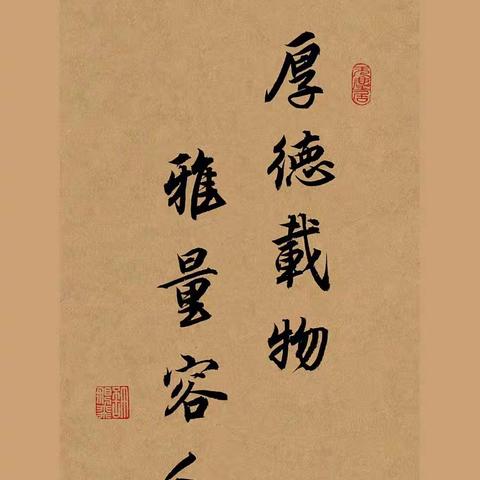 厚德載物
雅量容